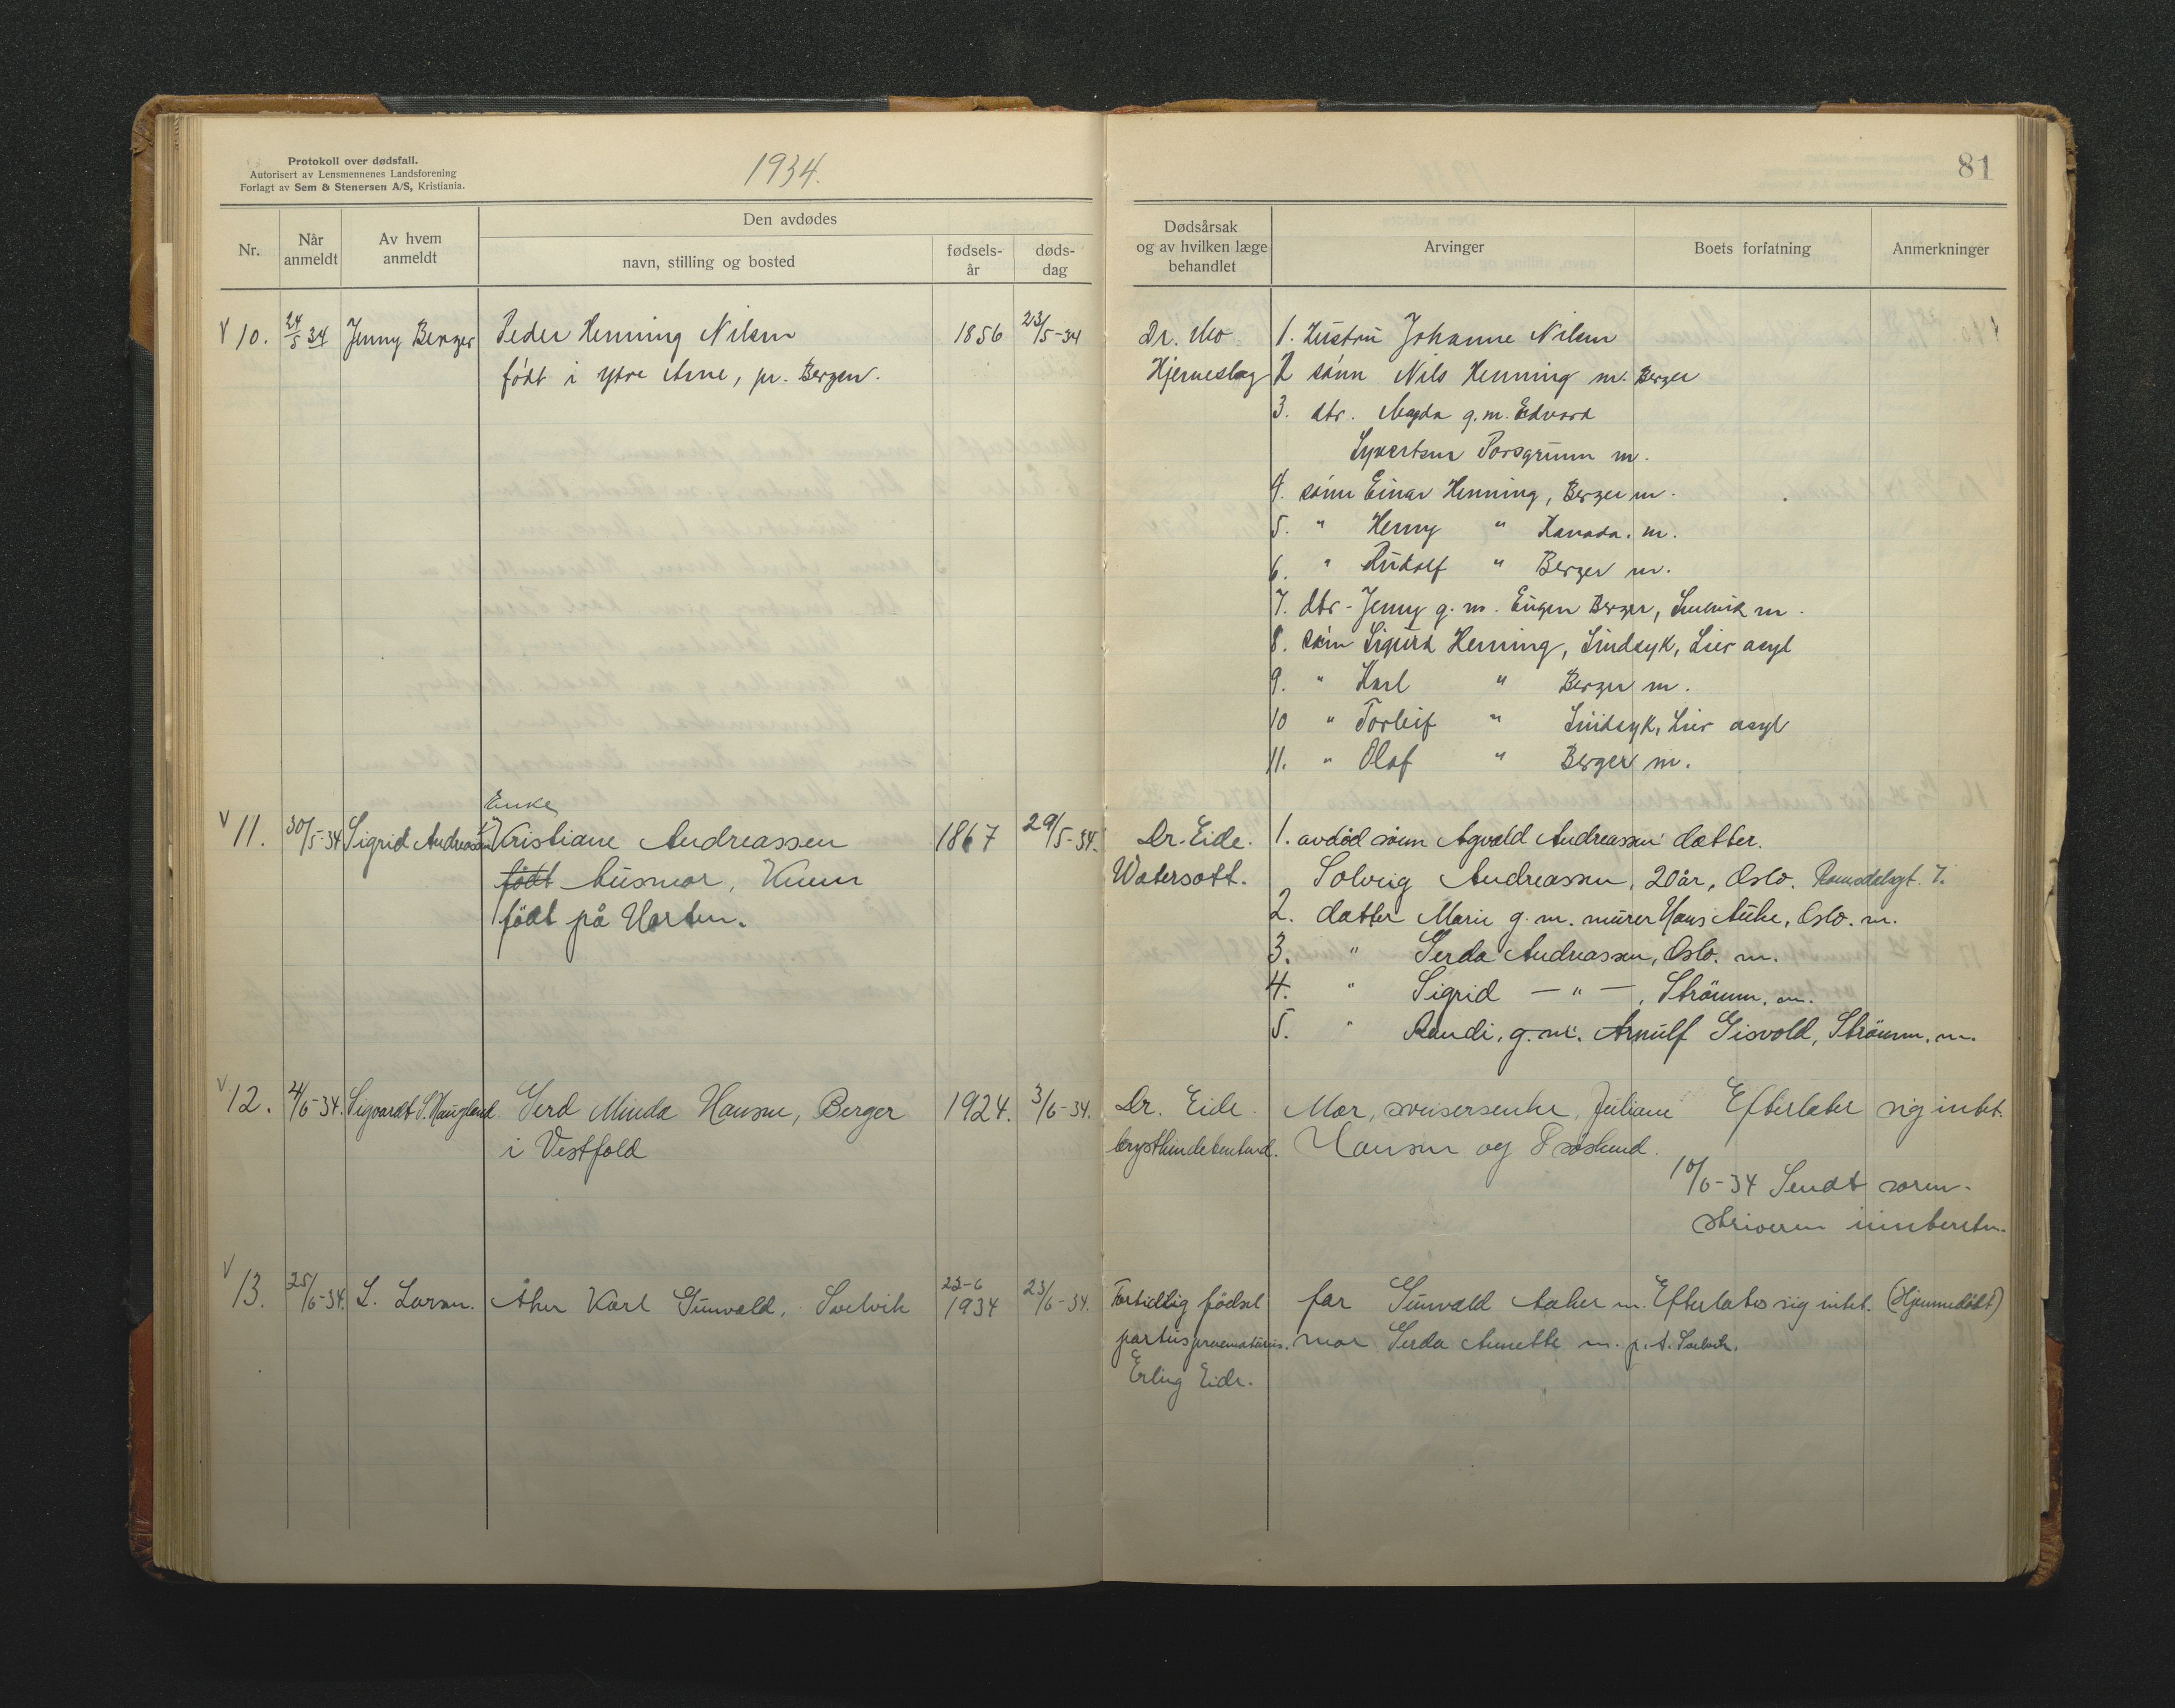 Protokoll over dødsfall.
Autorisert av Lensmennenes Landsforening
Forlagt av Sem & Stenersen A/S, Kristiania.
1934.
Nr.
Når anmeldt
Av hvem anmeldt
Den avdødes
navn, stilling og bosted
fødsels-år
døds-dag
81
Dødsårsak og av hvilken læge behandlet
Arvinger
Boets forfatning
Anmerkninger
V 10. 24/5 34 Jenny Berger Peder Henning Nilsen 1856 23/5-34
født i ytre Arne, pr. Bergen.
Dr. Mo
Hjerneslag
1. Hustru Johanne Nilsen
2 sønn Nils Henning m. Berger
3. dtr. Magda g.m. Edvard
Syvertsen Porsgrunn m.
4. sønn Einar Henning, Berger m.
5. " Henry " Kanada. m.
6. " Rudolf " Berger m.
7. dtr - Jenny g. m. Eugen Berger, m.
8. sønn Sigurd Henning, Sindsyk, Lier asyl
9. " Karl " Berger m.
10 " Torleif " Sindsyk, Lier asyl
11. " Olaf " Berger m.
Enke
V 11. 30/5-34 Sigrid Andreassen Kristiane Andreassen 1867 29/5-34.
født husmor,
født på Horten.
Dr. Eide.
Watersott.
1. avdød sønn Agvald Andreassen datter.
Solveig Andreassen, 20 år, Oslo. Romsdalsgt. 7.
2. datter Marie g. m. murer Hans Oslo. m.
3. " Gerda Andreassen, Oslo. m.
4. " Sigrid — " —, Strömm. m.
5. " Randi, g. m. Arnulf Gisvold, Strömm. m.
V 12. 4/6-34. Sigvardt S. Haugland Gerd Minda Hansen, Berger 1924. 3/6-34.
i Vestfold
Dr. Eide.
Mor, Juliane
Hansen og 8 søskend.
Efterlater sig intet.
10/6-34 Sendt soren-
skriveren
V 13. 25/6-34. L. Larsen. Åker Karl Gunvald, Svelvik 23-6 1934 23/6-34.
Fortidlig födsel
partus praematurus.
Erling Eide.
far Gunvald Aaker m.
mor Gerda Annette m. p.t. Svelvik.
Efterlater sig intet. (Hjemmedöbt)